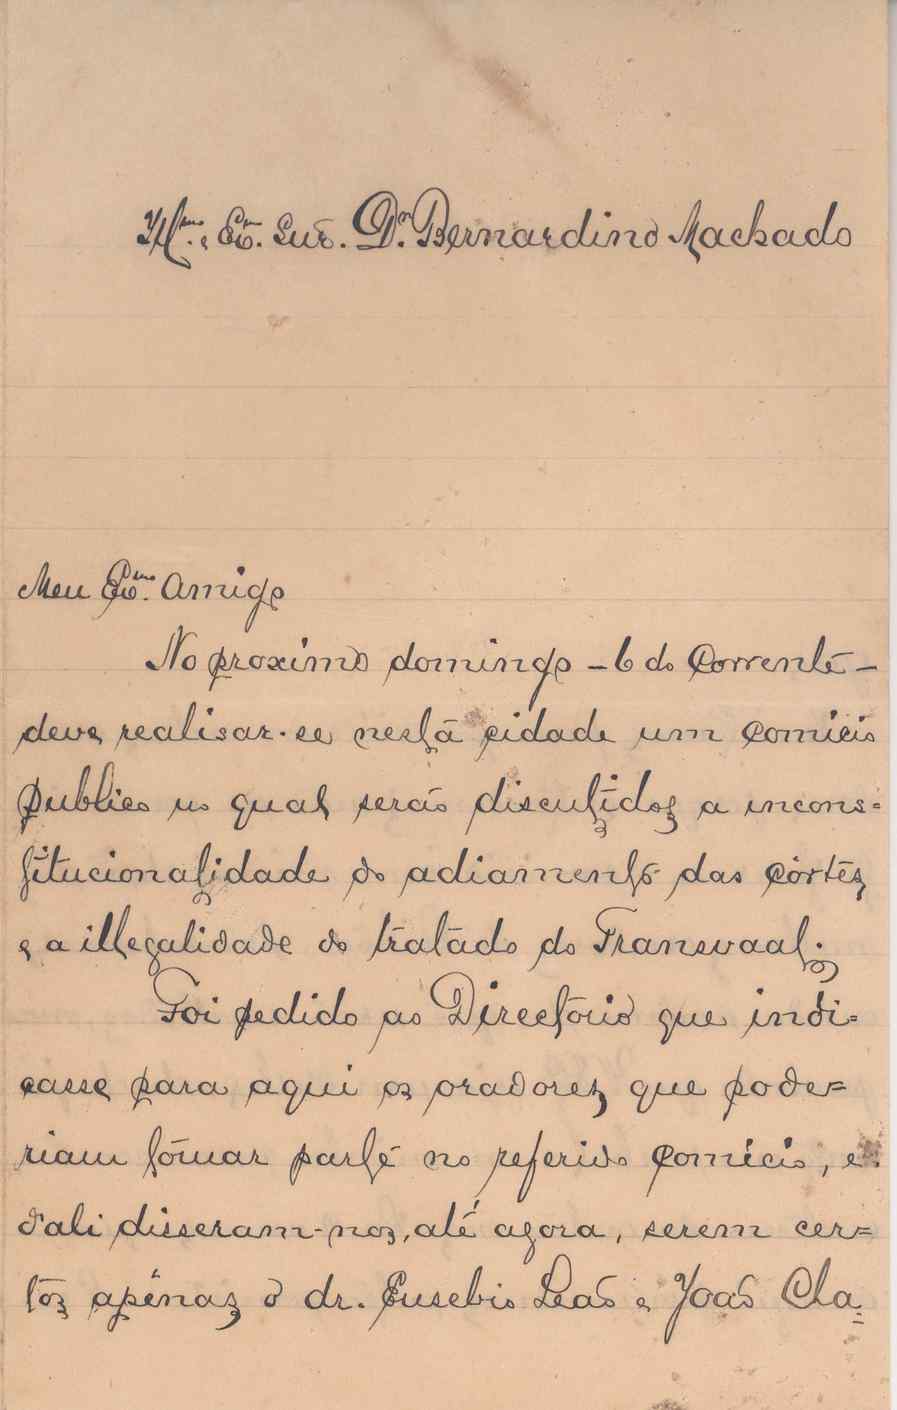 Ill.mo e Ex.mo Snr. Dr. Bernardino Machado
Meu Ex.mo Amigo
No proximo domingo – 6 do corrente –
deve realisar-se nesta cidade um comicio
publico no qual serão discutidos a incons=
titucionalidade do adiamento das côrtes
e a illegalidade do tratado do Transvaal.
Foi pedido ao Directorio que indi=
casse para aqui os oradores que pode=
riam tomar parte no referido comicio, e
d'ali disseram-nos, até agora, serem cer=
tos apenas o dr. Eusebio Leão e João Cha=